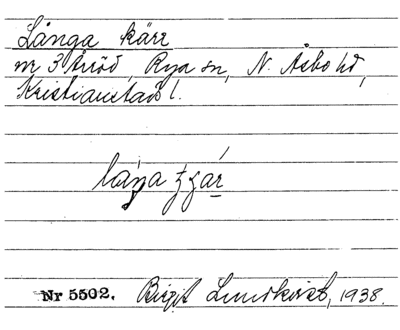 Långa kärr
nr 3 Årröd, Rya sn, N. Åsbo hd,
Kristianstads l.
Nr 5502. Birgit Lundkvist, 1938.